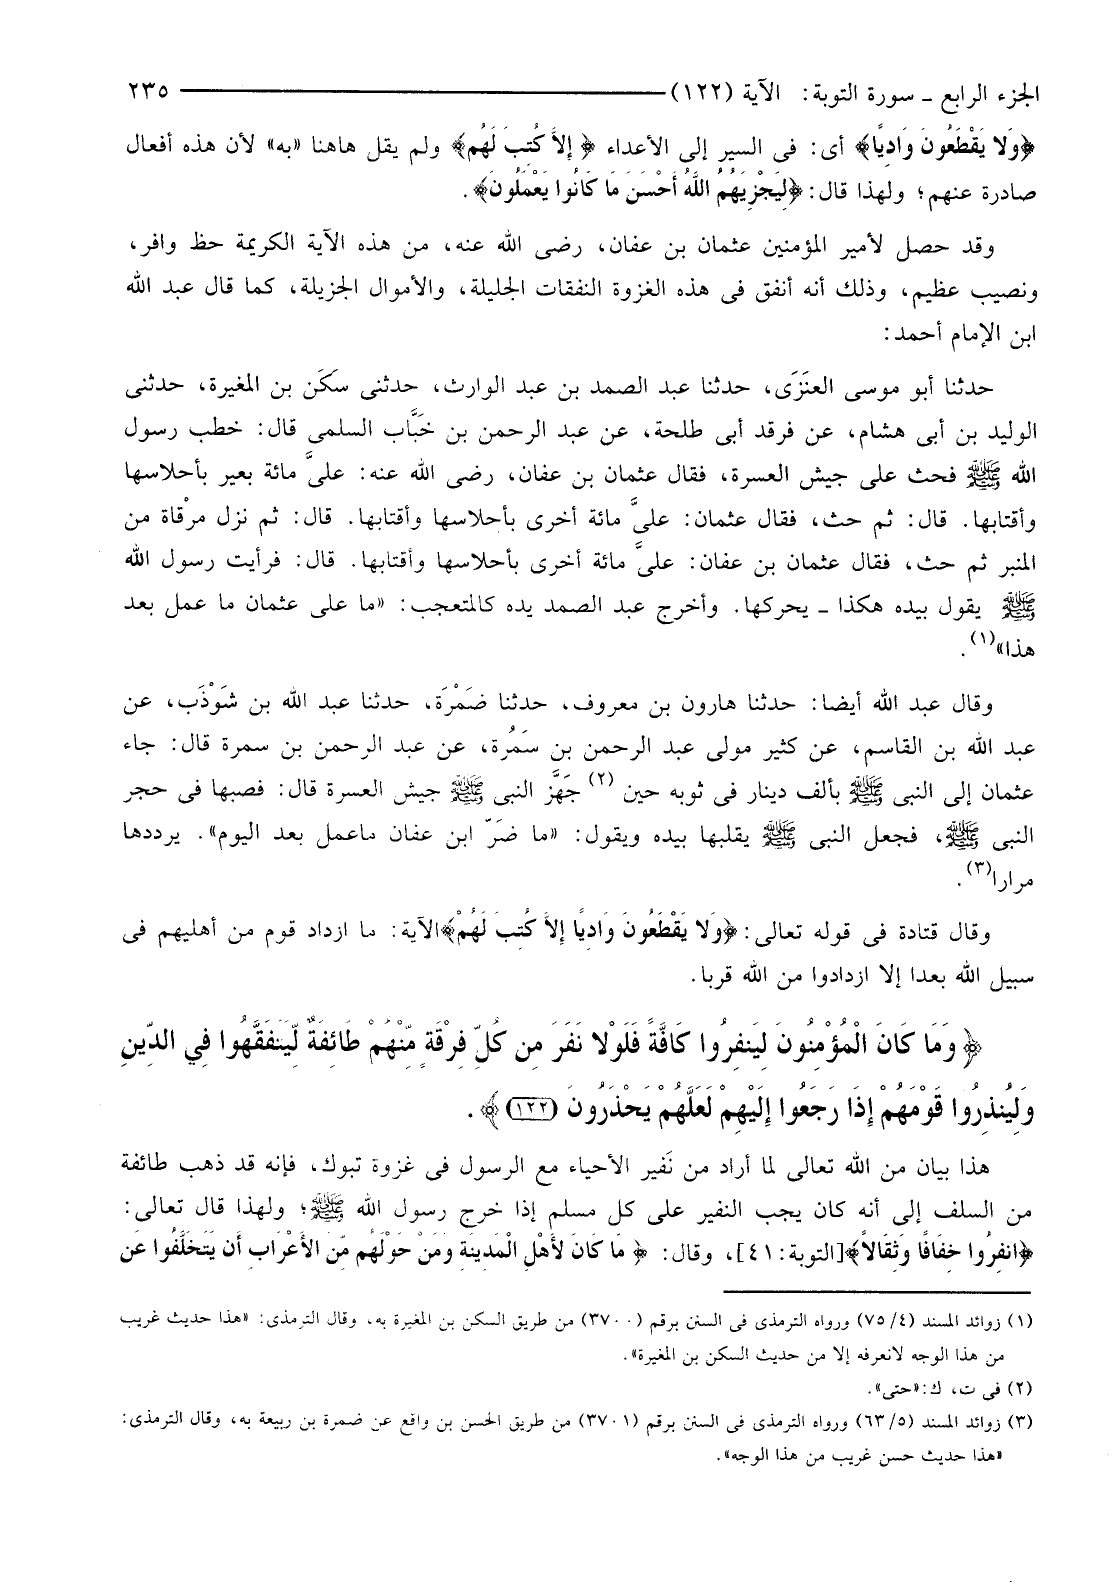 الجزء الرابع ـ سورة التوبة: الآية (١٢٢) ٢٣٥
﴿وَلا يَقْطَعُونَ وَادِيًا﴾ أى: فى السير إلى الأعداء ﴿ إِلاَّ كُتِبَ لَهُم﴾ ولم يقل هاهنا «به» لأن هذه أفعال
صادرة عنهم؛ ولهذا قال: ﴿لِيَجْزِيَهُمُ اللَّهُ أَحْسَنَ مَا كَانُوا يَعْمَلُونَ﴾.
وقد حصل لأمير المؤمنين عثمان بن عفان، رضى الله عنه، من هذه الآية الكريمة حظ وافر،
ونصيب عظيم، وذلك أنه أنفق فى هذه الغزوة النفقات الجليلة، والأموال الجزيلة، كما قال عبد الله
ابن الإمام أحمد:
حدثنا أبو موسى العنَزَى، حدثنا عبد الصمد بن عبد الوارث، حدثنى سكَن بن المغيرة، حدثنى
الوليد بن أبى هشام، عن فرقد أبى طلحة، عن عبد الرحمن بن خَبَّاب السلمى قال: خطب رسول
الله ﷺ فحث على جيش العسرة، فقال عثمان بن عفان، رضى الله عنه: علىَّ مائة بعير بأحلاسها
وأقتابها. قال: ثم حث، فقال عثمان: علىَّ مائة أخرى بأحلاسها وأقتابها. قال: ثم نزل مرْقاة من
المنبر ثم حث، فقال عثمان بن عفان: علىَّ مائة أخرى بأحلاسها وأقتابها. قال: فرأيت رسول الله
ﷺ يقول بيده هكذا ـ يحركها. وأخرج عبد الصمد يده كالمتعجب: «ما على عثمان ما عمل بعد
هذا»(١).
وقال عبد الله أيضا: حدثنا هارون بن معروف، حدثنا ضَمْرَة، حدثنا عبد الله بن شَوْذَب، عن
عبد الله بن القاسم، عن كثير مولى عبد الرحمن بن سَمُرة، عن عبد الرحمن بن سمرة قال: جاء
عثمان إلى النبى ﷺ بألف دينار فى ثوبه حين (٢) جَهَّز النبى ﷺ جيش العسرة قال: فصبها فى حجر
النبى ﷺ، فجعل النبى ﷺ يقلبها بيده ويقول: «ما ضَرّ ابن عفان ماعمل بعد اليوم». يرددها
مرارا(٣).
وقال قتادة فى قوله تعالى: ﴿وَلا يَقْطَعُونَ وَادِيًا إِلاَّ كُتِبَ لَهُمْ﴾الآية: ما ازداد قوم من أهليهم فى
سبيل الله بعدا إلا ازدادوا من الله قربا.
﴿ وَمَا كَانَ الْمُؤْمِنُونَ لِيَنفِرُوا كَافَّةً فَلَوْلا نَفَرَ مِن كُلِّ فِرْقَةٍ مِّنْهُمْ طَائِفَةٌ لِّيَتَفَقَّهُوا فِي الدِّينِ
وَلِيُنذِرُوا قَوْمَهُمْ إِذَا رَجَعُوا إِلَيْهِمْ لَعَلَّهُمْ يَحْذَرُونَ (١٢٢)﴾.
هذا بيان من الله تعالى لما أراد من نَفير الأحياء مع الرسول فى غزوة تبوك، فإنه قد ذهب طائفة
من السلف إلى أنه كان يجب النفير على كل مسلم إذا خرج رسول الله ﷺ؛ ولهذا قال تعالى:
﴿انفِرُوا خِفَافًا وَثِقَالاً﴾[التوبة:٤١]، وقال: ﴿ مَا كَانَ لأَهْلِ الْمَدِينَةِ وَمَنْ حَوْلَهُم مِّنَ الأَعْرَابِ أَن يَتَخَلَّفُوا عَن
(١) زوائد المسند (٧٥/٤) ورواه الترمذى فى السنن برقم (٣٧٠٠) من طريق السكن بن المغيرة به، وقال الترمذى: «هذا حديث غريب
من هذا الوجه لانعرفه إلا من حديث السكن بن المغيرة».
(٢) فى ت، ك:«حتى».
(٣) زوائد المسند (٦٣/٥) ورواه الترمذى فى السنن برقم (٣٧٠١) من طريق الحسن بن واقع عن ضمرة بن ربيعة به، وقال الترمذى:
«هذا حديث حسن غريب من هذا الوجه».